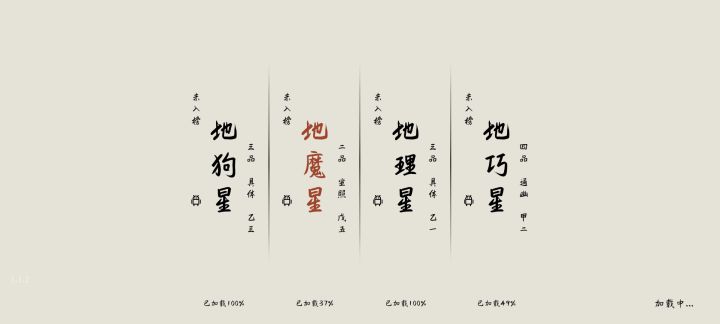 未入榜
地狗星
三品 具体 乙三
已加载100%
未入榜
地魔星
二品 坐照 戊五
已加载37%
未入榜
地理星
三品 具体 乙一
已加载100%
未入榜
地巧星
四品 通幽 甲二
已加载49%
1.1.2
加载中...